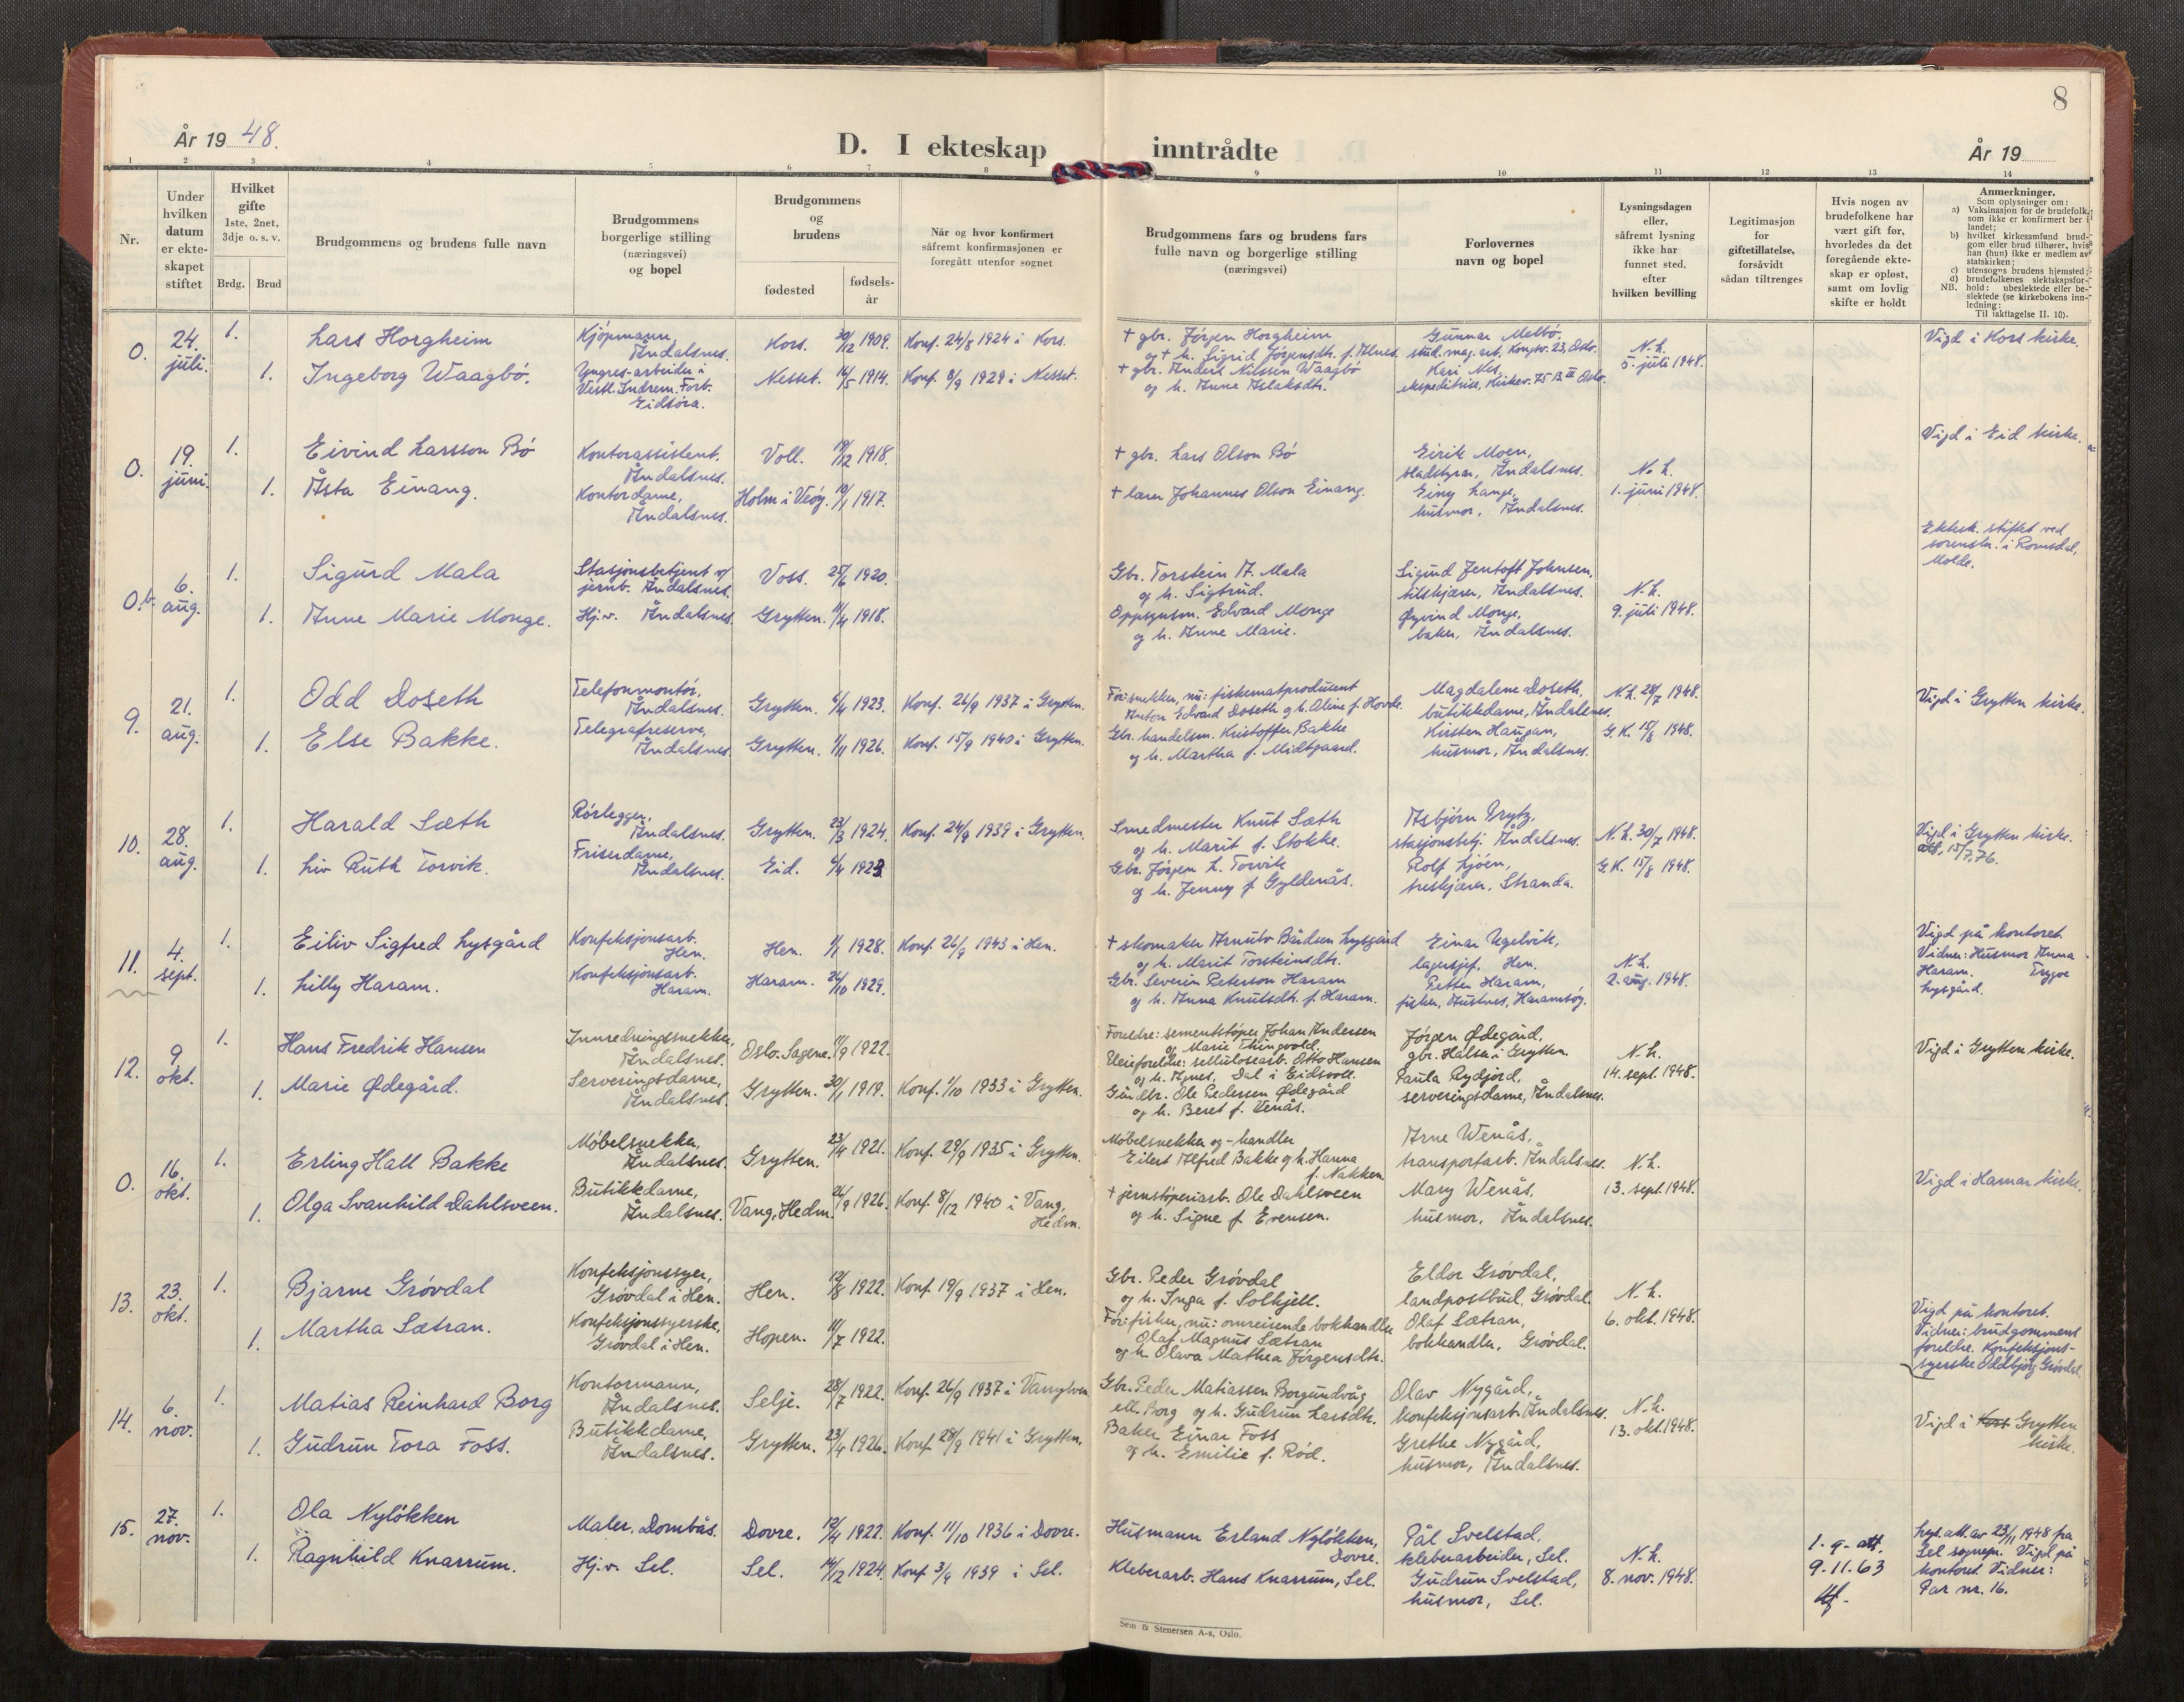 8
År 1948.
D. I ekteskap inntrådte
År 19
1 2 3 4 5 6 7 8 9 10 11 12 13 14
Nr.
Under hvilken datum er ekteskapet stiftet
Hvilket gifte 1ste, 2net, 3dje o. s. v.
Brdg. Brud
Brudgommens og brudens fulle navn
Brudgommens borgerlige stilling (næringsvei) og bopel
Brudgommens og brudens
fødested
fødselsår
Når og hvor konfirmert såfremt konfirmasjonen er foregått utenfor sognet
Brudgommens fars og brudens fars fulle navn og borgerlige stilling (næringsvei)
Forlovernes navn og bopel
Lysningsdagen eller, såfremt lysning ikke har funnet sted, efter hvilken bevilling
Legitimasjon for giftetillatelse, forsåvidt sådan tiltrenges
Hvis nogen av brudefolkene har vært gift før, hvorledes da det foregående ekteskap er opløst, samt om lovlig skifte er holdt
Anmerkninger.
Som oplysninger om:
a) Vaksinasjon for de brudefolk, som ikke er konfirmert her i landet;
b) hvilket kirkesamfund brudgom eller brud tilhører, hvis han (hun) ikke er medlem av statskirken;
c) utensogns brudens hjemsted;
d) brudefolkenes slektskapsforhold: ubeslektede eller beslektede (se kirkebokens innledning;
NB.
Til iakttagelse II. 10).
0. 24. juli. 1. Lars Horgheim Kjøpmann, Åndalsnes. Kors. 30/12 1909. Konf. 24/8 1924 i Kors.
+ gbr. Jørgen Horgheim og + h. Sigrid Jørgensdtr. f. Alnes. Gunnar Melbö, stud. mag. art, Kongsv. 23, Oslo. N.L. 5. juli 1948. Vigd i Kors kirke.
1. Ingeborg Waagbø. Yngres-arbeider i Vestl. Indrem. Forb. Eidsöra. Nesset. 14/5 1914. Konf. 8/9 1929 i Nesset.
+ gbr. Anders Nilssen Waagbø og h. Anne Aslaksdtr. Kari Nes, ekspeditrise, Kirkev. 75 B III Oslo.
0. 19. juni. 1. Eivind Larsson Bö Kontorassistent. Åndalsnes. Voll. 19/12 1918.
+ gbr. Lars Olson Bö Eirik Moen, stadstyrar, Åndalsnes. N.L. 1. juni 1948. Vigd i Eid kirke.
1. Åsta Einang. Kontordame, Åndalsnes. Holm i Veöy. 10/1 1917.
+ lærer Johannes Olson Einang. Einy Lange, husmor, Åndalsnes.
0.b. 6. aug. 1. Sigurd Mala Stasjonsbetjent v/ jernb. Åndalsnes. Voss. 25/6 1920.
Gbr. Torstein A. Mala og h. Sigtrud. Sigurd Jentoft Johnsen, tilskjærer, Åndalsnes. N.L. 9. juli 1948. Ektesk. stiftet ved sorenskr. i Romsdal, Molde.
1. Anne Marie Monge. Hj.v. Åndalsnes. Grytten. 11/4 1918.
Oppsynsm. Edvard Monge og h. Anne Marie. Øyvind Monge, baker, Åndalsnes.
9. 21. aug. 1. Odd Doseth Telefonmontör, Åndalsnes. Grytten. 6/4 1923. Konf. 26/9 1937 i Grytten.
För: snekker, nu: fiskematprodusent Anton Edvard Doseth og h. Aline f. Hovde. Magdalene Doseth, butikkdame, Åndalsnes. N.L. 28/7 1948. Vigd i Grytten kirke.
1. Else Bakke. Telegrafreserve, Åndalsnes. Grytten. 1/11 1926. Konf. 15/9 1940 i Grytten.
Gbr. handelsm. Kristoffer Bakke og h. Martha f. Midtgaard. Kirsten Haugan, husmor, Åndalsnes. G.K. 15/8 1948.
10. 28. aug. 1. Harald Sæth Rörlegger, Åndalsnes. Grytten. 23/3 1924. Konf. 24/9 1939 i Grytten.
Smedmester Knut Sæth og h. Marit f. Stokke. Asbjörn Grytz, stasjonsbetj. Åndalsnes. N.L. 30/7 1948. Vigd i Grytten kirke. att. 15/7,76.
1. Liv Ruth Torvik. Friserdame, Åndalsnes. Eid. 6/4 1923.
Gbr. Jörgen L. Torvik og h. Jenny f. Gyldenås. Rolf Ljöen, treskjærer, Stranda. G.K. 15/8 1948.
11. 4. sept. 1. Eiliv Sigfred Lysgård Konfeksjonsarb. Hen. Hen. 1/1 1928. Konf. 26/9 1943 i Hen.
+ skomaker Arnulv Bårdsen Lysgård og h. Marit Torsteinsdtr. Einar Ugelvik, lagersjef, Hen. N.L. 2. aug. 1948. Vigd på kontoret. Vidner: Husmor Anna Haram. Trygve Lysgård.
1. Lilly Haram. Konfeksjonsarb. Haram. Haram. 26/10 1929.
Gbr. Severin Peterson Haram og h. Anna Knutsdtr. f. Haram. Petter Haram, fisker, Austnes, Haramsöy.
12. 9. okt. 1. Hans Fredrik Hansen Innredningssnekker, Åndalsnes. Oslo. Sagene. 11/9 1922.
Foreldre: sementstøper Johan Andersen og Marie Thingvold. Pleieforeldre: sellulosearb. Otto Hansen og h. Agnes, Dal i Eidsvoll. Jörgen Ødegård, gbr. Halsa i Grytten. N.L. 14. sept. 1948. Vigd i Grytten kirke.
1. Marie Ødegård. Serveringsdame, Åndalsnes. Grytten. 30/1 1919. Konf. 1/10 1933 i Grytten.
Gårdbr. Ole Pedersen Ødegård og h. Beret f. Venås. Paula Rydjord, serveringsdame, Åndalsnes.
0. 16. okt. 1. Erling Hall Bakke Möbelsnekker, Åndalsnes. Grytten. 23/4 1921. Konf. 29/9 1935 i Grytten.
Möbelsnekker og -handler Eilert Alfred Bakke og h. Hanna f. Nakken Arne Wenås, transportarb. Åndalsnes. N.L. 13. sept. 1948. Vigd i Hamar kirke.
1. Olga Svanhild Dahlsveen. Butikkdame, Åndalsnes. Vang, Hedm. 26/9 1926. Konf. 8/12 1940 i Vang, Hedm.
+ jernstöperiarb. Ole Dahlsveen og h. Signe f. Evensen. Mary Wenås, husmor, Åndalsnes.
13. 23. okt. 1. Bjarne Grövdal Konfeksjonssyer, Grövdal i Hen. Hen. 12/8 1922. Konf. 19/9 1937 i Hen.
Gbr. Peder Grövdal og h. Inga f. Solkjell. Eldor Grövdal, landpostbud, Grövdal. N.L. 6. okt. 1948. Vigd på kontoret. Vidner: brudgommens foreldre. Konfeksjonssyerske Oddbjörg Grövdal.
1. Martha Sætran. Konfeksjonssyerske, Grövdal i Hen. Hopen. 11/7 1922.
För: fisker, nu: omreisende bokhandler Olaf Magnus Sætran og h. Olava Mathea Jörgensdtr. Olaf Sætran, bokhandler, Grövdal.
14. 6. nov. 1. Matias Reinhard Borg Kontormann, Åndalsnes. Selje. 28/7 1922. Konf. 26/9 1937 i Vanylven
Gbr. Peder Matiassen Borgundvåg ell. Borg og h. Gudrun Larsdtr. Olav Nygård, konfeksjonsarb. Åndalsnes. N.L. 13. okt. 1948. Vigd i Kors Grytten kirke.
1. Gudrun Tora Foss. Butikkdame, Åndalsnes. Grytten. 23/4 1926. Konf. 28/9 1941 i Grytten.
Baker Einar Foss og h. Emilie f. Röd. Grethe Nygård, husmor, Åndalsnes.
15. 27. nov. 1. Ola Nylökken Maler, Dombås. Dovre. 12/4 1922. Konf. 11/10 1936 i Dovre.
Husmann Erland Nylökken, Dovre. Pål Svelstad, kleberarbeider, Sel. N.L. 8. nov. 1948. 1. g. att. 9.11.63 Lys. att. av 23/11 1948 fra Sel sognepr. Vigd på kontoret. Vidner: Par nr. 16.
1. Ragnhild Knarrum. Hj.v. Sel. Sel. 14/12 1924. Konf 3/9 1939 i Sel.
Kleberarb. Hans Knarrum, Sel. Gudrun Svelstad, husmor, Sel.
Sem & Stenersen A-s, Oslo.